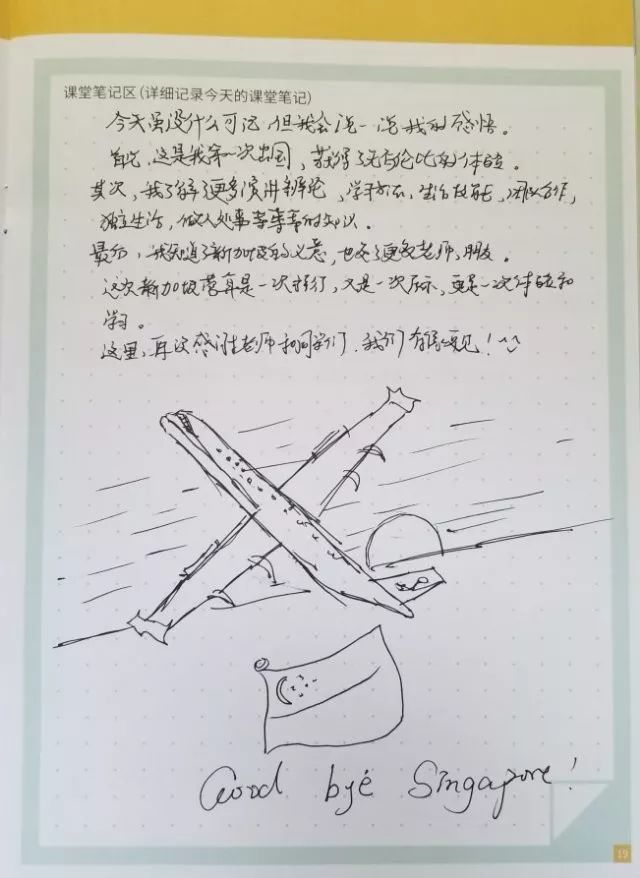 课堂笔记区(详细记录今天的课堂笔记)
今天虽没什么可记,但我会说一说我的感悟。
首先,这是我第一次出国,获得了无与伦比的体验。
其次,我了解了更多演讲辩论,学习方法,生活技能,团队合作,
独立生活,做人处事等等等的知识。
最后,我知道了新加坡的义意,也交了更多老师,朋友。
这次新加坡营真是一次旅行,又是一次展示,更是一次体验和
学习。
这里,再次感谢老师和同学们,我们有缘再见!^^
Good bye Singapore!
19